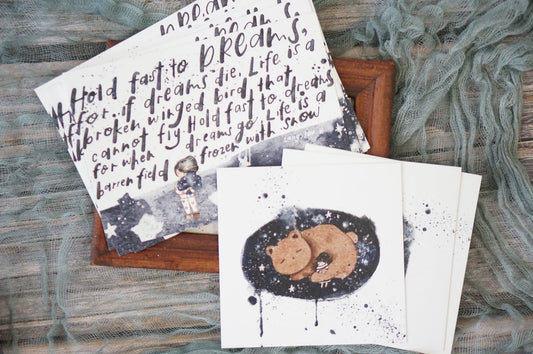 Hold fast to DREAMS,
for if dreams die, Life is a
broken winged bird that
cannot fly. Hold fast to dreams
for when dreams go, Life is a
barren field frozen with snow